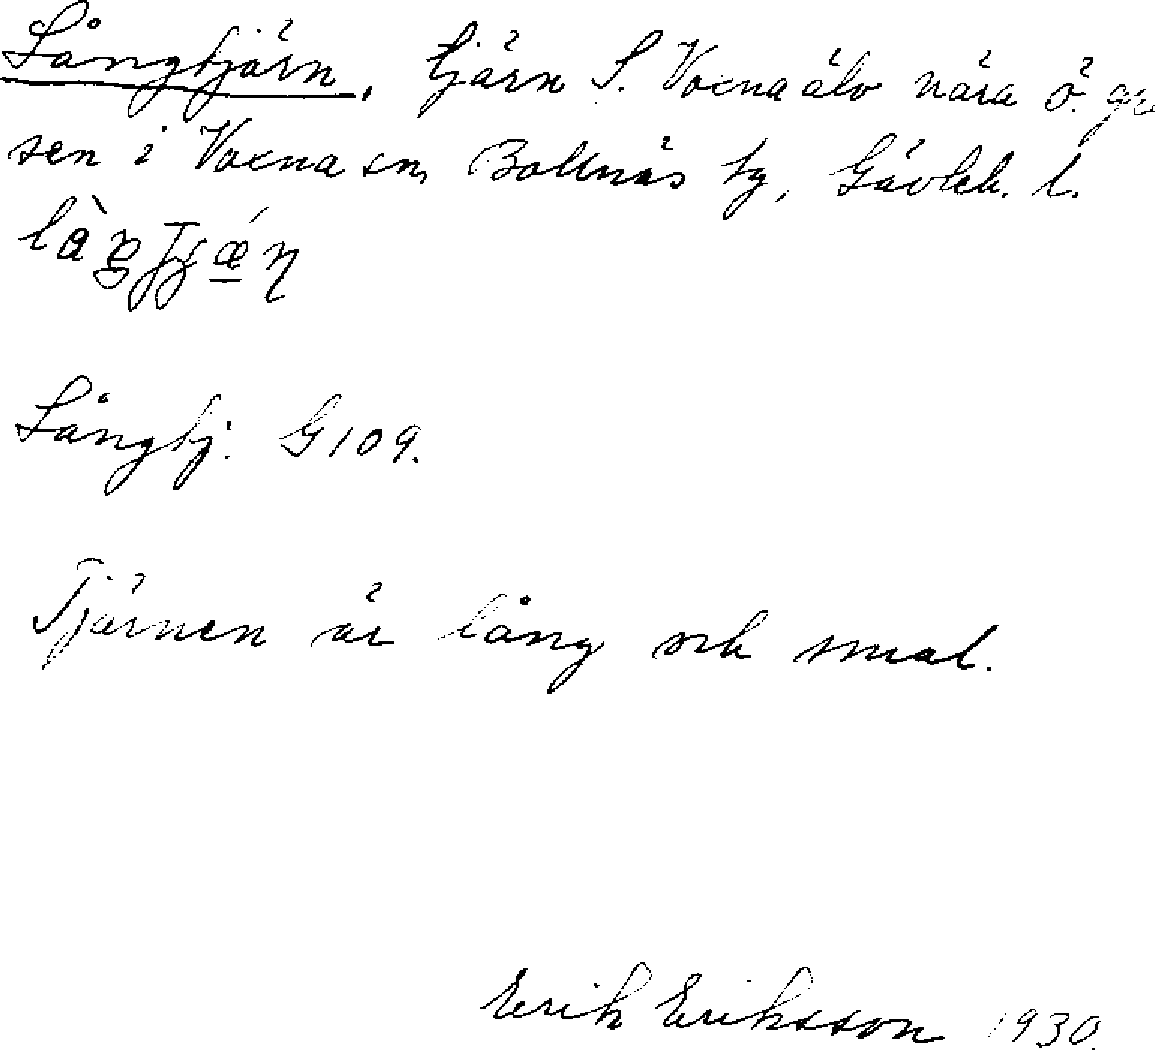 Långtjärn, tjärn S. Voxnaälv nära ö. grä
sen i Voxna sn, Bollnäs tg, Gävleb. l.
Långtj. G109.
Tjärnen är lång och smal.
Erik Eriksson 1930.